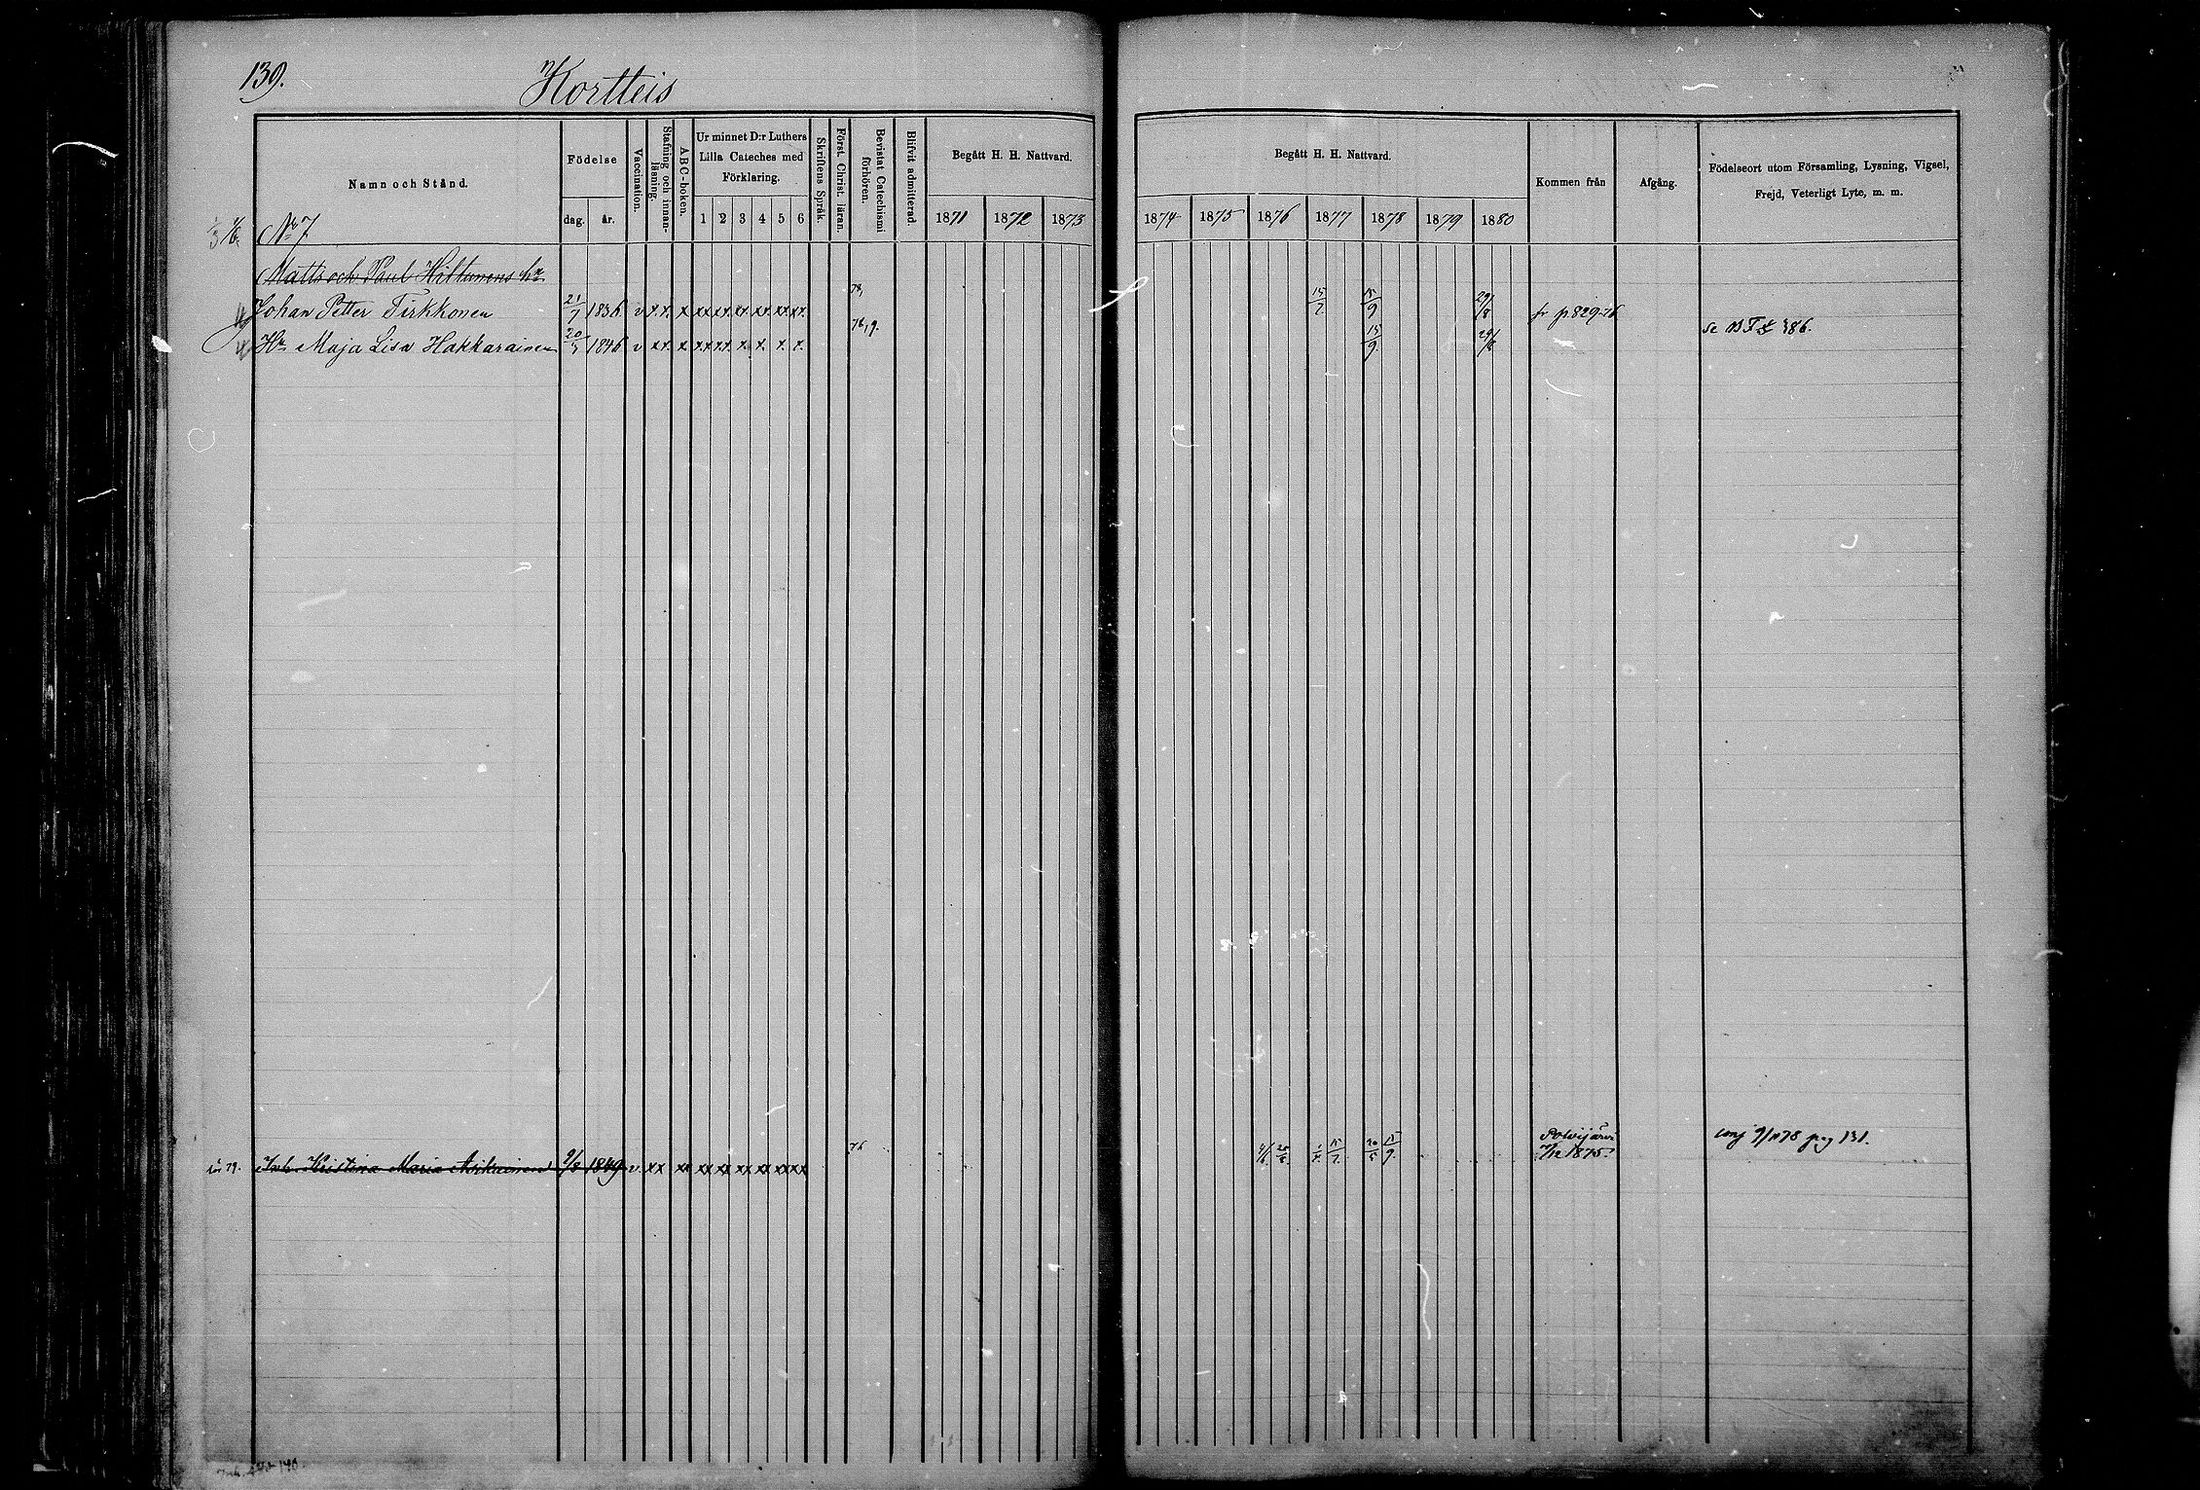 139.
Kortteis
Namn och Stånd.
Födelse
dag.
år.
Vaccination.
Stafning och innan-
läsning.
ABC-boken.
Ur minnet D:r Luthers
Lilla Cateches med
Förklaring.
1 2 3 4 5 6
Skriftens Språk.
Först. Christ. läran.
Bevistat Catechismi
förhören.
Blifvit admitterad.
Begått H. H. Nattvard.
1871 1872 1873
Begått H. H. Nattvard.
1874 1875 1876 1877 1878 1879 1880
Kommen från
Afgång.
Födelseort utom Församling, Lysning, Vigsel,
Frejd, Veterligt Lyte, m. m.
1/3 1/6 No 7
Matts och Paul Hiltunens
Johan Petter Tirkkonen 21/7 1836 v x.x. x xx xx xx xx xx xx 78, 15/7 15/9 29/8 fr p 829-76
Hu Maja Lisa Hakkarainen 20/5 1846 v x.x. x xx xx x. x. x. x. 76, 9. 15/9 29/8 se 386.
Inh. Kristina Maria Asikainen 9/2 1849 v xx xx xx xx xx xx xx xx 76 20/8 15/7 20/5 15/9 Polvijärvi
1875. 9/11 78 pag 131.